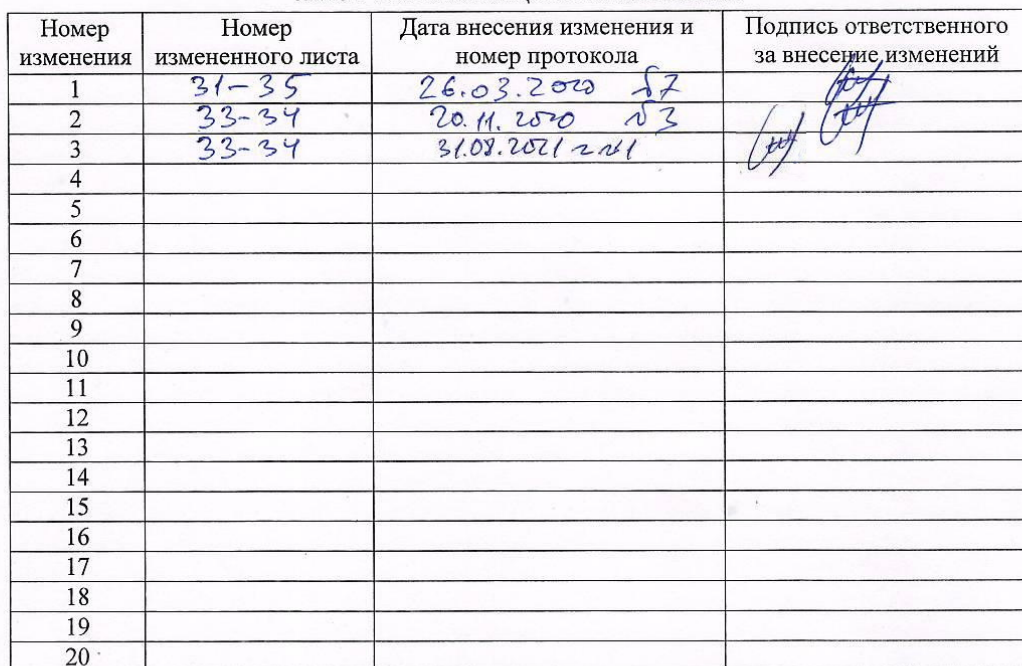 Номер изменения Номер измененного листа Дата внесения изменения и номер протокола Подпись ответственного за внесение изменений
1 31-35 26.03.2020 №7
2 33-34 20.11.2020 №3
3 33-34 31.08.2021 г №1
4
5
6
7
8
9
10
11
12
13
14
15
16
17
18
19
20